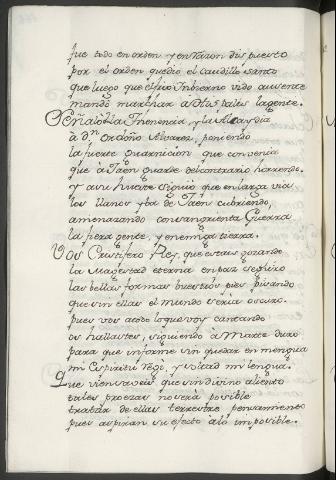 fue todo en orden y en raçon dispuesto
por el orden que dio el caudillo santo
que luego que el frio Inbierno vido ausente
mandó marchar a los tales la gente.
Peña la Tenencia, y la Alcaydia
à dn. Ordoño Alvarez, poniendo
la fuerte guarnicion que convenia
que à Jaen guarde del contrario horrendo.
y a su hueste siguio que en larga via
los llanos y de Jaen cubriendo,
amenazando con sangrienta Guerra
la fiera gente, y enemiga tierra.
Vos Crucifero Rey, que estais gozando
la Magestad eterna en paz seguro
las bellas formas buestros pies pisando
que sin ellas el mundo seria oscuro.
pues vos acedo lo que voy cantando
os hallastes, siguiendo à Marte duro
para que informe sin quedar en mengua
mi Espiritu regi, y guiad mi lengua.
Que vien saveis que sin divino aliento
tales proezas no será posible
tratar de ellas terrestre pensamiento
pues aspiran su efecto àlo imposible.